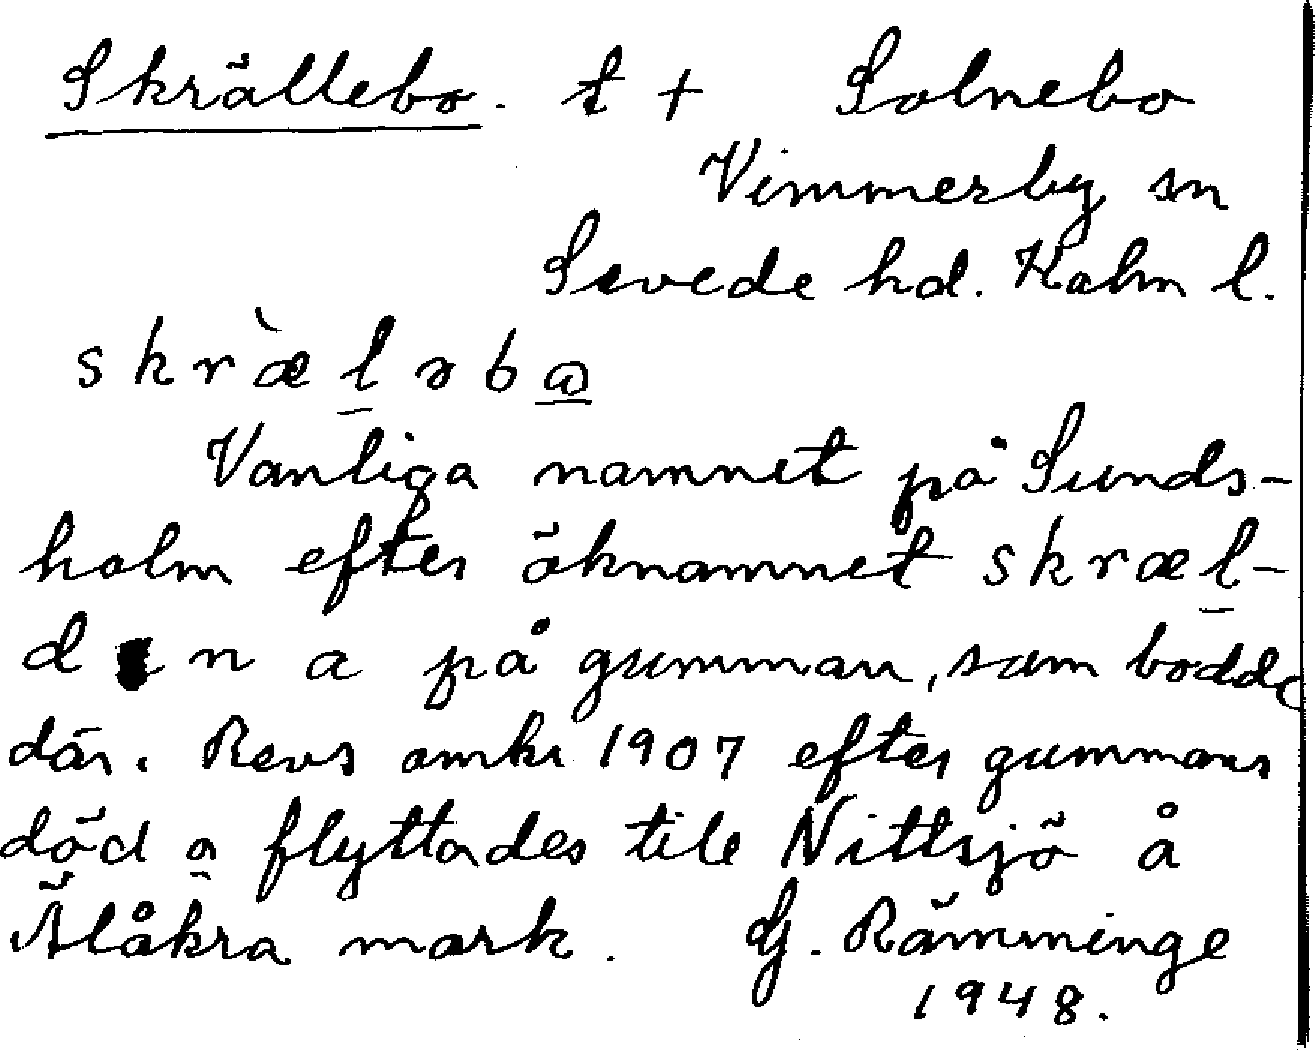 Skrällebo. t + Solnebo
Vimmerby sn
Sevede hd. Kalm l.
skræ̀l̠əbω̲
Vanliga namnet på Sunds-
holm efter öknamnet skræl̠-
d n a på gumman, som bodde
där. Revs omkr 1907 efter gummans
död o flyttades till Nittsjö å
Älåkra mark. G. Rämminge
1948.